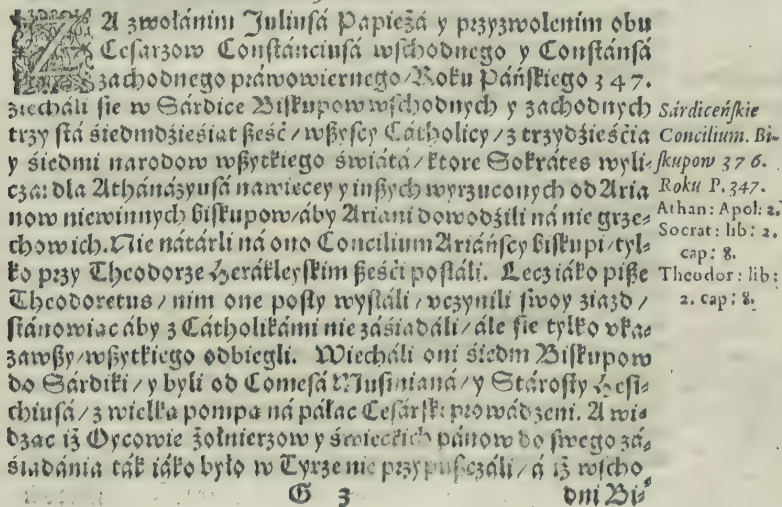 ZA zwołánim Juliusá Papieżá y przyzwolenim obu
Cesarzow Constánciusá wschodnego y Constánsá
zachodnego práwowiernego/Roku Páńskiego 347.
ziecháli sie w Sárdice Biskupow wschodnych y zachodnych
trzy stá śiedmdźieśiat sześć/wszyscy Cátholicy/z trzydźieśćia
y śiedmi narodow wszytkiego świátá/ktore Sokrátes wyli-
cza: dla Athánázyusá nawiecey y inszych wyrzuconych od Aria
now niewinnych biskupow/aby Ariani dowodźili ná nie grze-
chow ich. Nie nátárli ná ono Concilium Ariáńscy biskupi/tyl-
ko przy Theodorze Herákleyskim sześći posłáli. Lecz iáko pisze
Theodoretus/nim one posły wysłáli/vczynili swoy ziazd/
stánowiac áby z Cátholikámi nie záśiadáli/ále sie tylko vka-
zawszy/wszytkiego odbiegli. Wiecháli oni śiedm Biskupow
do Sárdiki/y byli od Comesá Musinianá/y Stárosty Hesi-
chiusá/z wielka pompa ná páłac Cesárski prowádzeni. A wi-
dzac iż Oycowie żołnierzow y świeckich pánow do swego zá-
śiadánia ták iáko było w Tyrze nie przypuszczáli/á iż wscho
G 3 dni Bi-
Sárdiceńskie
Concilium. Bi-
skupow 376.
Roku P. 347.
Athan: Apol: 2.
Socrat: lib: 2.
cap: 8.
Theodor: lib:
2. cap: 8.